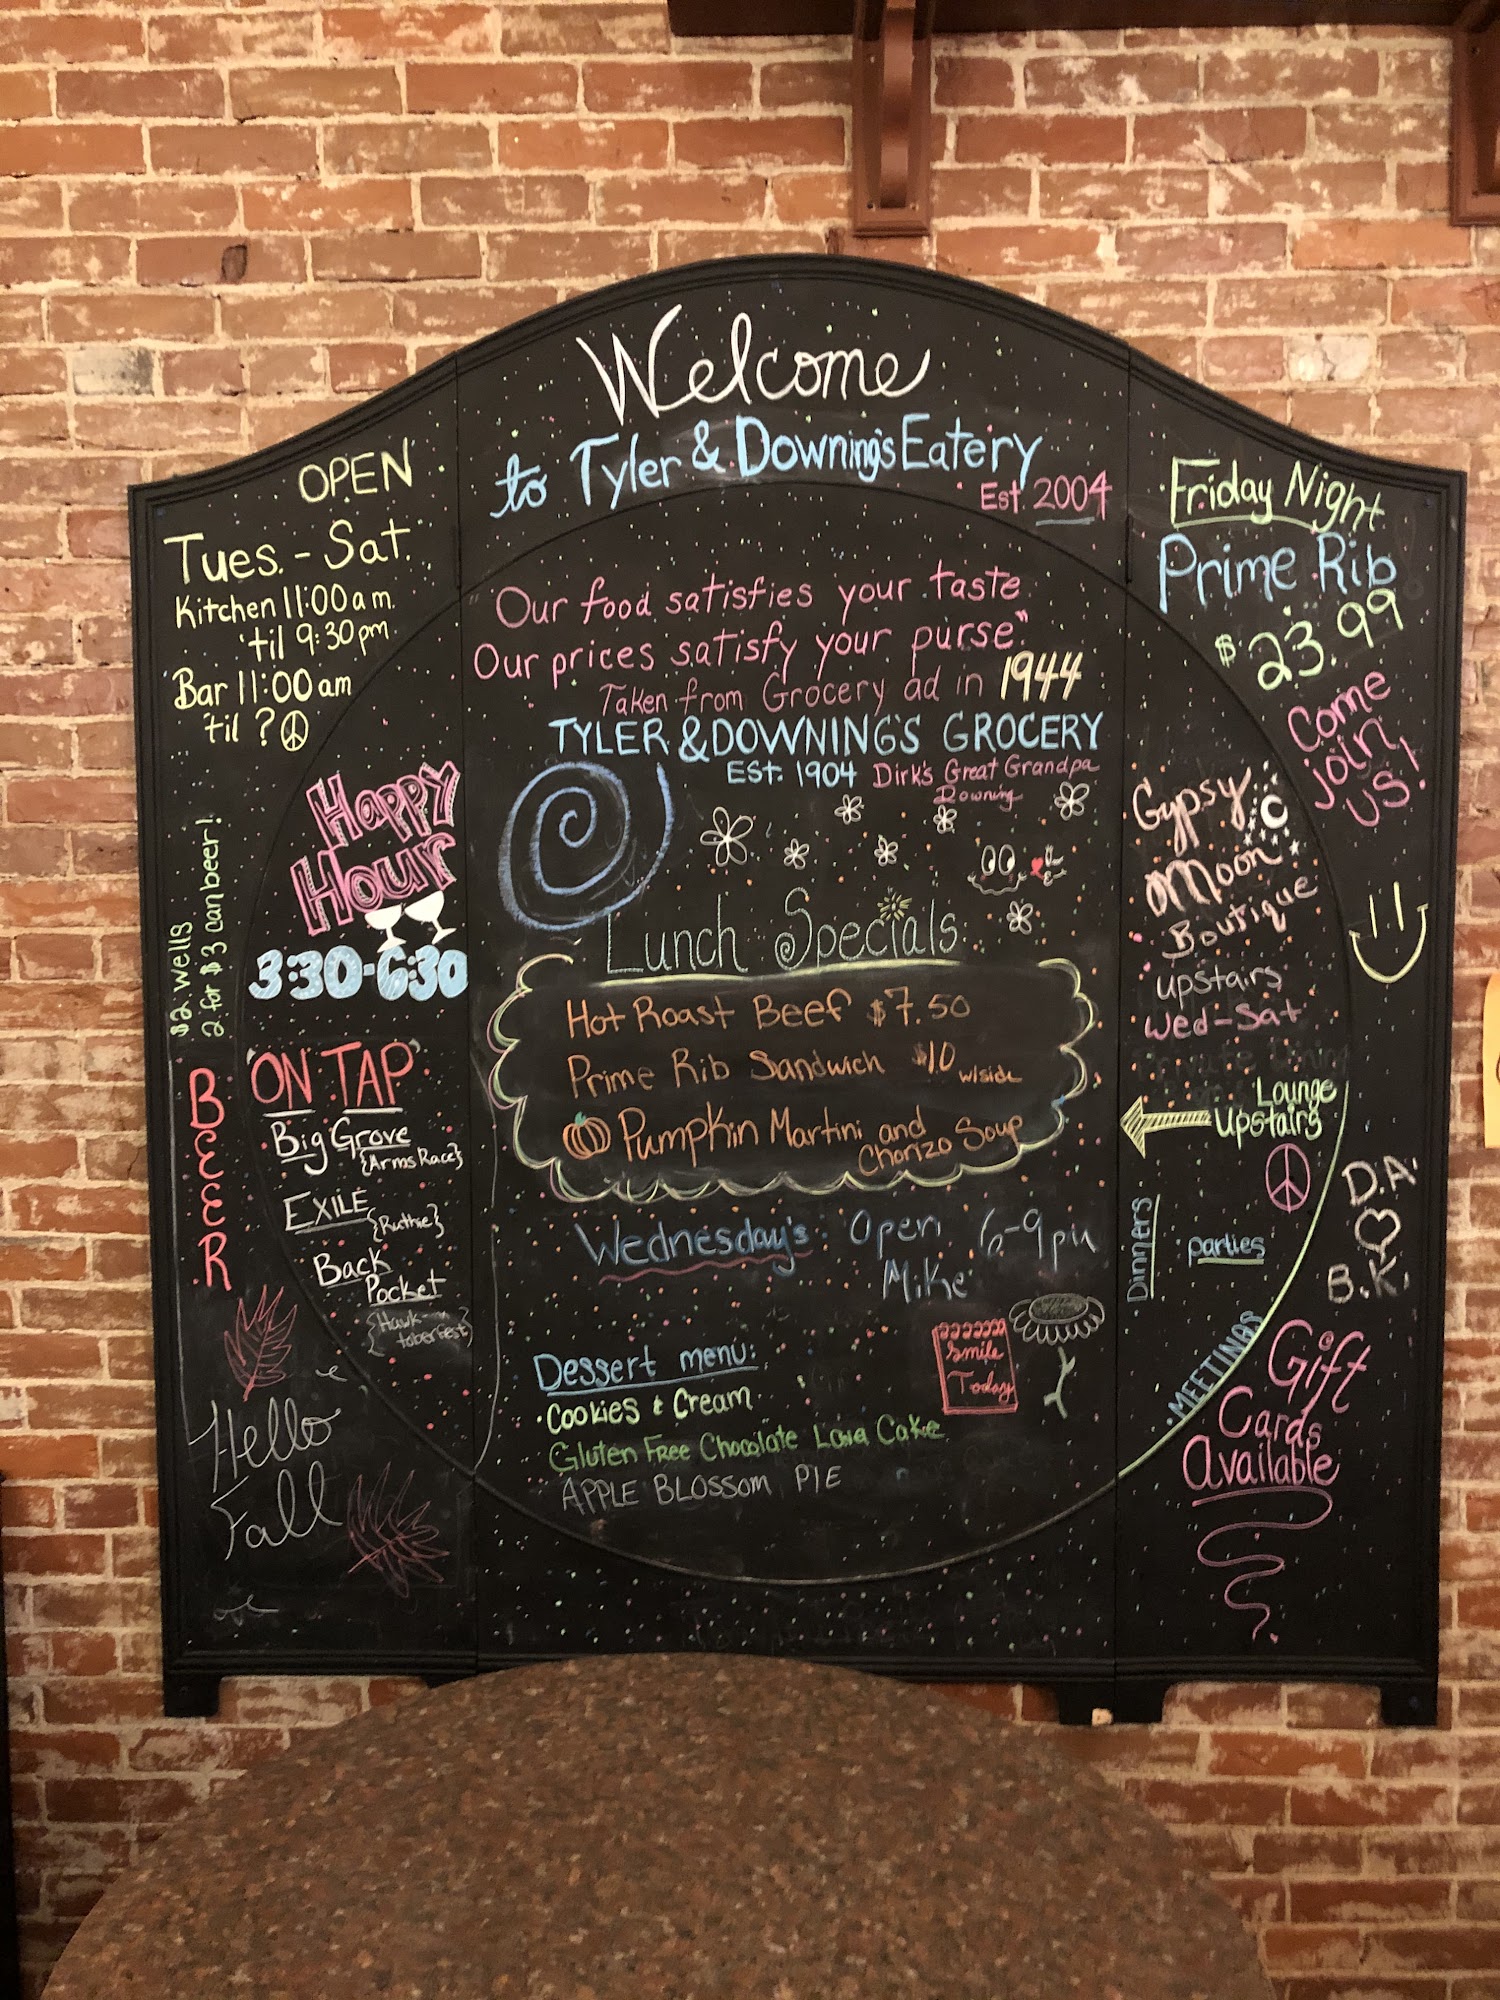 Welcome
to Tyler & Downing's Eatery
Est. 2004
"Our food satisfies your taste
Our prices satisfy your purse"
Taken from Grocery ad in 1944
TYLER & DOWNING'S GROCERY
EST. 1904 Dirk's Great Grandpa
Downing
Lunch Specials
Hot Roast Beef $7.50
Prime Rib Sandwich $10 w/side
Pumpkin Martini and
Chorizo Soup
Wednesday's: Open 6-9pm
Mike
Dessert menu:
Cookies & Cream
Gluten Free Chocolate Lava Cake
APPLE BLOSSOM PIE
Smile
Today
OPEN
Tues. - Sat.
Kitchen 11:00 am.
'til 9:30pm.
Bar 11:00 am
til ?
Happy
Hour
3:30-6:30
$2 wells
2 for $3 can beer!
BEER
"ON TAP"
Big Grove
{Arms Race}
EXILE
{Ruthie}
Back
Pocket
{Hawk-
toberfest}
Hello
Fall
Friday Night
Prime Rib
$23.99
Come
join
us!
Gypsy
Moon
Boutique
upstairs
Wed-Sat
Lounge
Upstairs
Dinners
parties
MEETINGS
D.A.
B.K.
Gift
Cards
Available